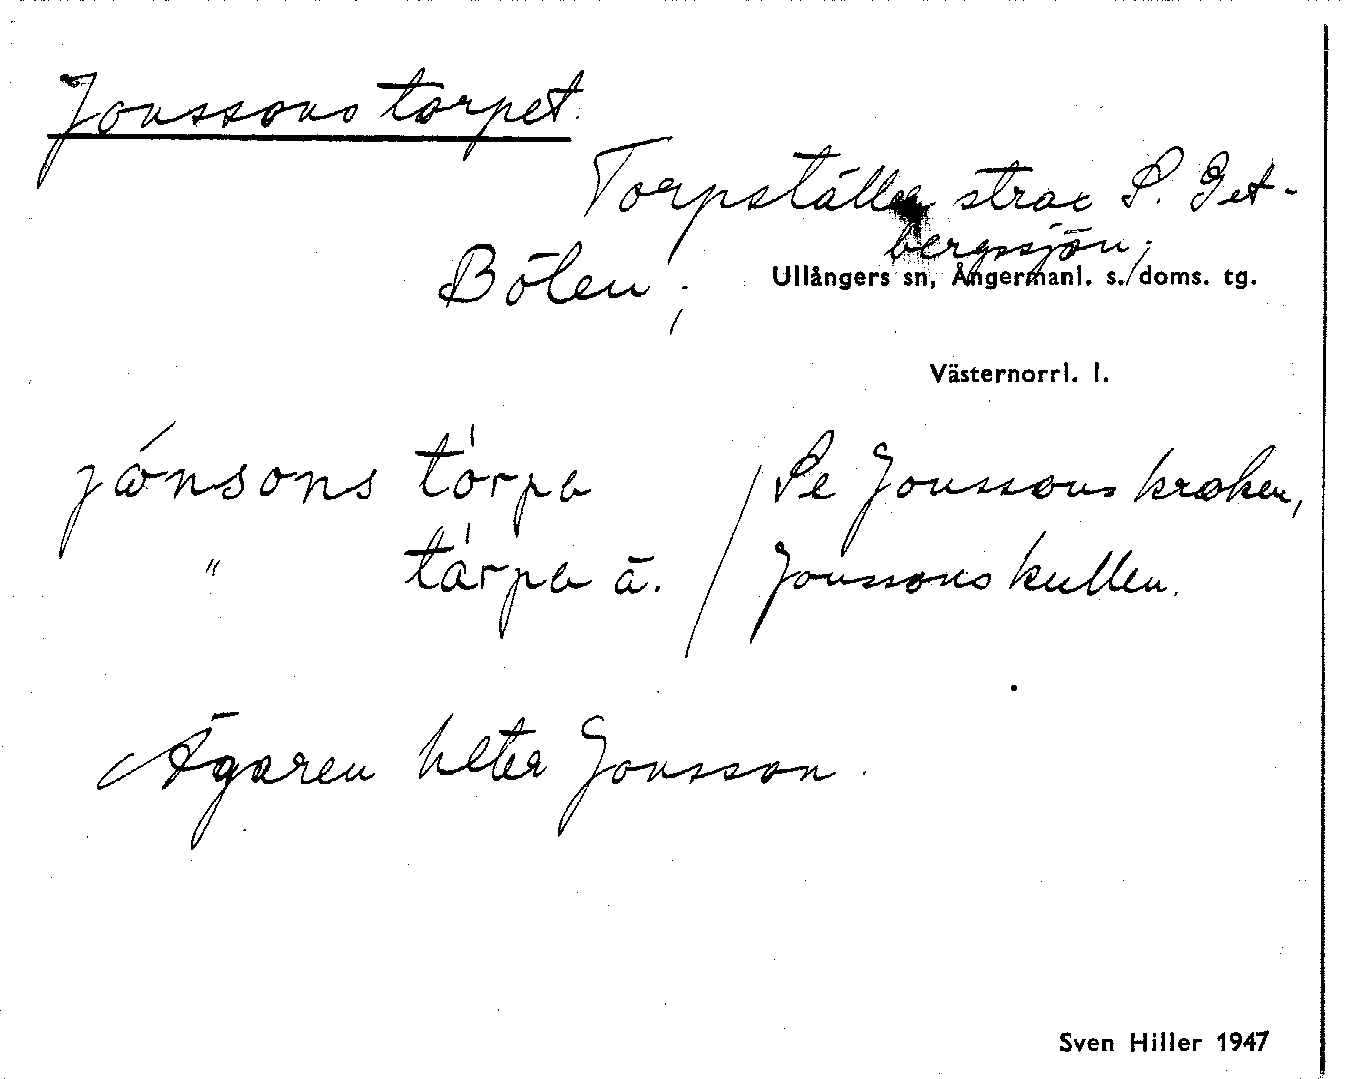 Jonssonstorpet.
Torpställe strax S. Get-
bergssjön;
Bölen;
Ullångers sn, Ångermanl. s. doms. tg.
Västernorrl. l.
jónsons tórpa / Se Jonssonskroken,
" tárpa ā. / Jonssonskullen.
Ägaren heter Jonsson.
Sven Hiller 1947